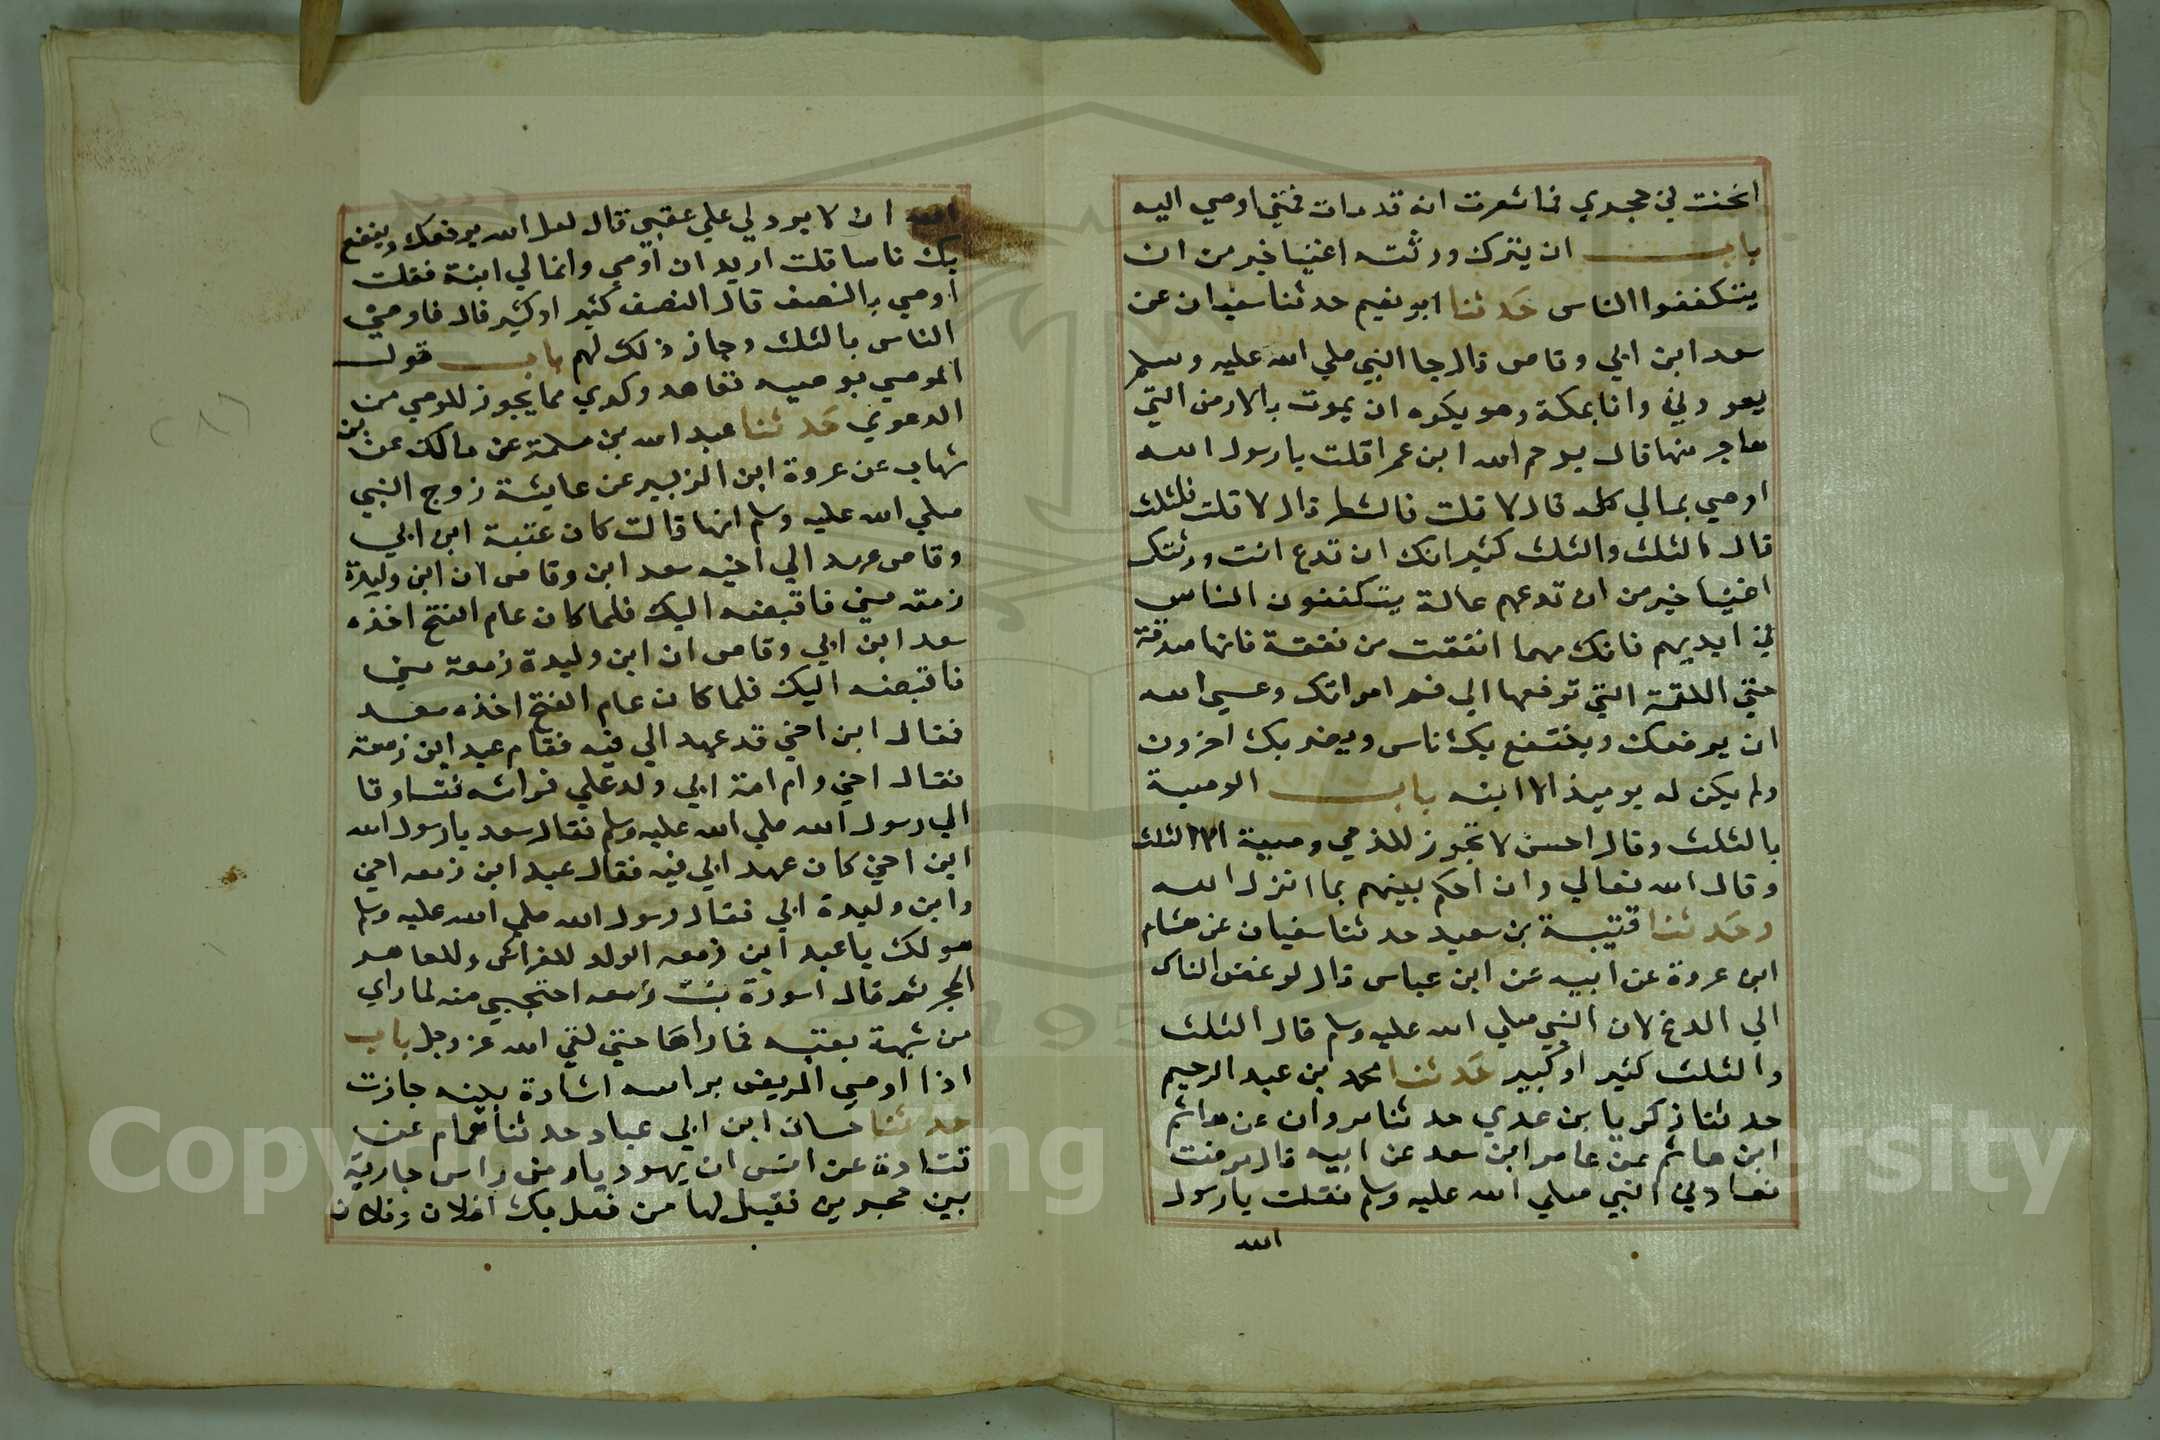 انخنت في حجري فما شعرت انه قد مات فمتي اوصي اليه
باب ان يترك ورثته اغنيا خير من ان
يتكففوا الناس حَدثنا ابو نعيم حدثنا سفيان عن
سعد ابن ابي وقاص قال جا النبي صلي الله عليه وسلم
يعودني وانا بمكة وهو يكره ان يموت بالارض التي
هاجر منها قال يرحم الله ابن عمرا قلت يا رسول الله
اوصي بمالي كله قال لا قلت فالشطر قال لا قلت فلثلث
قال فالثلث والثلث كثير انك ان تدع انت ورثتك
اغنيا خير من ان تدعهم عالة يتكففون الناس
في ايديهم فانك مهما انفقت من نفقة فانها صدقة
حتي اللقمة التي ترفعها الي فم امراتك وعسي الله
ان يرفعك وينتفع بك ناس ويضر بك اخرون
ولم يكن له يوميذ الا ابنه باب الوصية
بالثلث وقال احسن لا تجوز للذمي وصية الا الثلث
وقال الله تعالي وان احكم بينهم بما انزل الله
وحَدثنا قتيبة بن سعيد حدثنا سفيان عن هشام
ابن عروة عن ابيه عن ابن عباس قال لو غض الناس
الي الدبغ لان النبي صلي الله عليه وسلم قال الثلث
والثلث كثير او كبير حَدثنا محمد بن عبد الرحيم
حدثنا زكريا بن عدي حدثنا مروان عن هاشم
ابن هاشم عن عامر ابن سعد عن ابيه قال مرضت
فعادني النبي صلي الله عليه وسلم فقلت يا رسول
الله
الله ان لا يردلي علي عقبي قال لعل الله يرفعك وينفع
بك ناسا قلت اريد ان اوصي وانما لي ابنة فقلت
اوصي بالنصف قال النصف كثير او كثير قال فاوصي
الناس بالثلث وجاز ذلك لهم باب قول
الموصي بوصيه تعاهد وكدي مما يجوز للوصي من
الدعوي حَدثنا عبد الله بن مسلمة عن مالك عن بن
شهاب عن عروة ابن الزبير عن عايشة زوج النبي
صلي الله عليه وسلم انها قالت كان عتبة ابن ابي
وقاص عهد الي اخيه سعد ابن وقاص ان ابن وليدة
زمعه مني فاقبضه اليك فلما كان عام الفتح اخذه
سعد ابن ابي وقاص ان ابن وليدة زمعة مني
فاقبضه اليك فلما كان عام الفتح اخذه سعد
فقال ابن اخي قد عهد الي فيه فقام عبد ابن زمعة
فقال اخي وام امة ابي ولد علي فراشه فتساوقا
الي رسول الله صلي الله عليه وسلم فقال سعد يا رسول الله
ابن اخي كان عهد الي فيه فقال عبد ابن زمعه اخي
وابن وليدة ابي فقال رسول الله صلي الله عليه وسلم
هو لك يا عبد ابن زمعه الولد للفراش وللعاهد
الحجر ثم قال اسودة بنت زمعه احتجبي منه لما راي
من شبهة بعتبه فما راها حتي لقي الله عز وجل باب
اذا اومي المريض براسه اشارة بينه جازت
حدثنا حسان ابن ابي عباد حدثنا همام عن
قتادة عن انس ان يهوديا رض راس جارية
بين حجرين فقيل لها من فعل بك افلان وفلان
Copyright King Saud University
1957